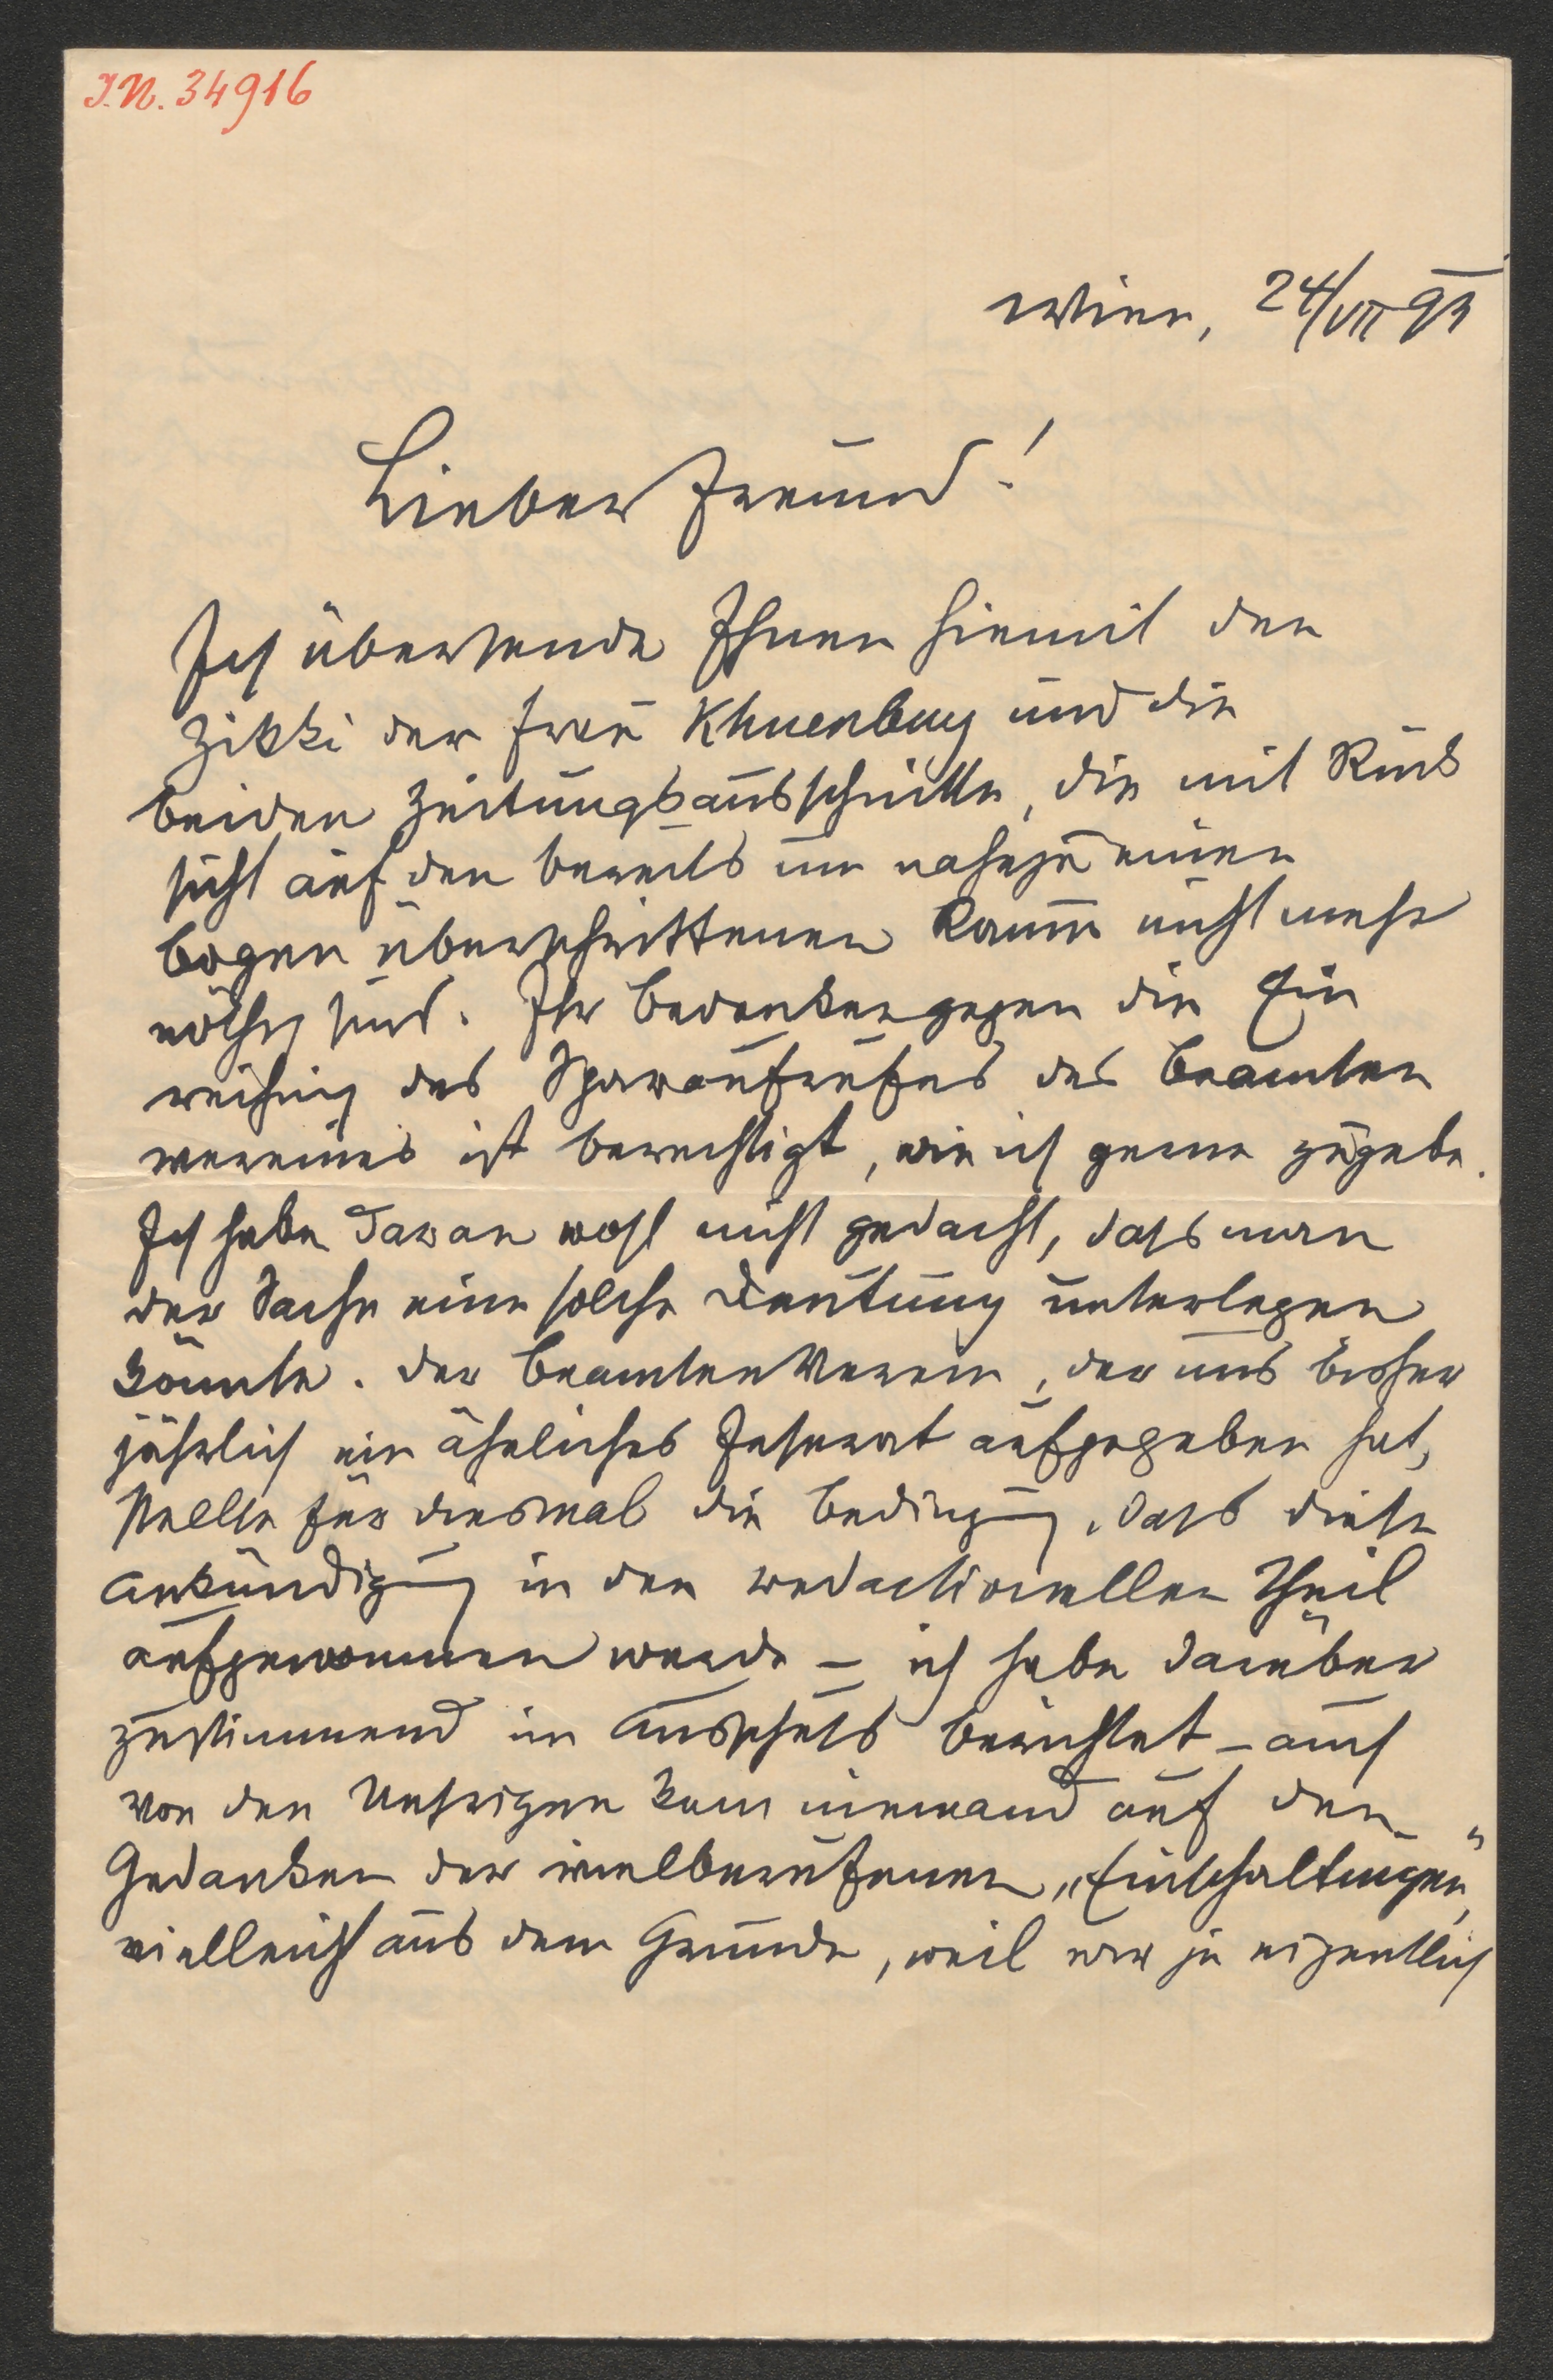 J.N. 34916
Wien, 24/VII 93
Lieber Freund!
Ich übersende Ihnen hiemit den
Zikki der Frau Khuenburg und die
beiden Zeitungsausschnitte, die mit Rück
sicht auf den bereits um nahezu einen
Bogen überschrittenen Raum nicht mehr
nöthig sind. Ihr Bedenken gegen die Ein
reihung des Sparaufrufes des Beamten
vereines ist berechtigt, wie ich gerne zugebe.
Ich habe daran wohl nicht gedacht, dass man
der Sache eine solche Deutung unterlegen
könnte. Der Beamten Verein, der uns bisher
jährlich ein ähnliches Inserat aufgegeben hat,
stellte für diesmal die Bedingung, dass diese
Ankündigung in den redactionellen Theil
aufgenommen werde – ich habe darüber
zustimmend im Ausschuss berichtet – auch
von den Unsrigen kam niemand auf den
Gedanken der vielberufenen „Einschaltungen",
vielleicht aus dem Grunde, weil wir ja eigentlich